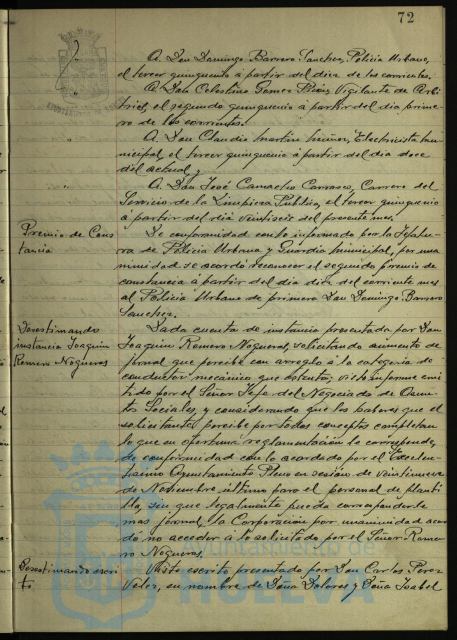 72
A Don Domingo Barrero Sanchez, Policia Urbano,
el tercer quinquenio á partir del dia diez de los corrientes.
A Don Celestino Gomez Vigilante de Arbi-
trios, el segundo quinquenio á partir del dia prime-
ro de los corrientes.
A Don Claudio Martin Electricista mu-
nicipal, el tercer quinquenio á partir del dia doce
del actual, y
A Don José Camacho Carrasco, Carrero del
Servicio de la Limpieza Publica, el tercer quinquenio
á partir del dia veintiseis del presente mes.
Premio de Cons
tancia
De conformidad con lo informado por la Jefatu-
ra de Policia Urbana y Guardia municipal, por una-
nimidad se acordó reconocer el segundo premio de
constancia á partir del dia diez del corriente mes
al Policia Urbano de primera Don Domingo Barrero
Sanchez.
Desestimando
instancia Joaquin
Romero Nogueras
Dada cuenta de instancia presentada por Don
Joaquin Romero Nogueras, solicitando aumento de
jornal que percibe con arreglo á la categoria de
conductor mecánico que ostenta, visto informe emi-
tido por el Señor Jefe del Negociado de Asun-
tos Sociales, y considerando que los haberes que el
solicitante percibe por todos conceptos completan
lo que en oportuna reglamentación le corresponde,
de conformidad con lo acordado por el Excelen-
tisimo Ayuntamiento Pleno en sesión de veintinueve
de Noviembre último para el personal de planti-
lla, sin que legalmente pueda corresponderle
mas jornal, la Corporación por unanimidad acor-
dó no acceder á lo solicitado por el Señor Rome-
ro Nogueras.
Desestimando escri
to
Visto escrito presentado por Don Carlos Perez
Velez, en nombre de Doña Dolores y Doña Isabel
Ayuntamiento de
HUELVA